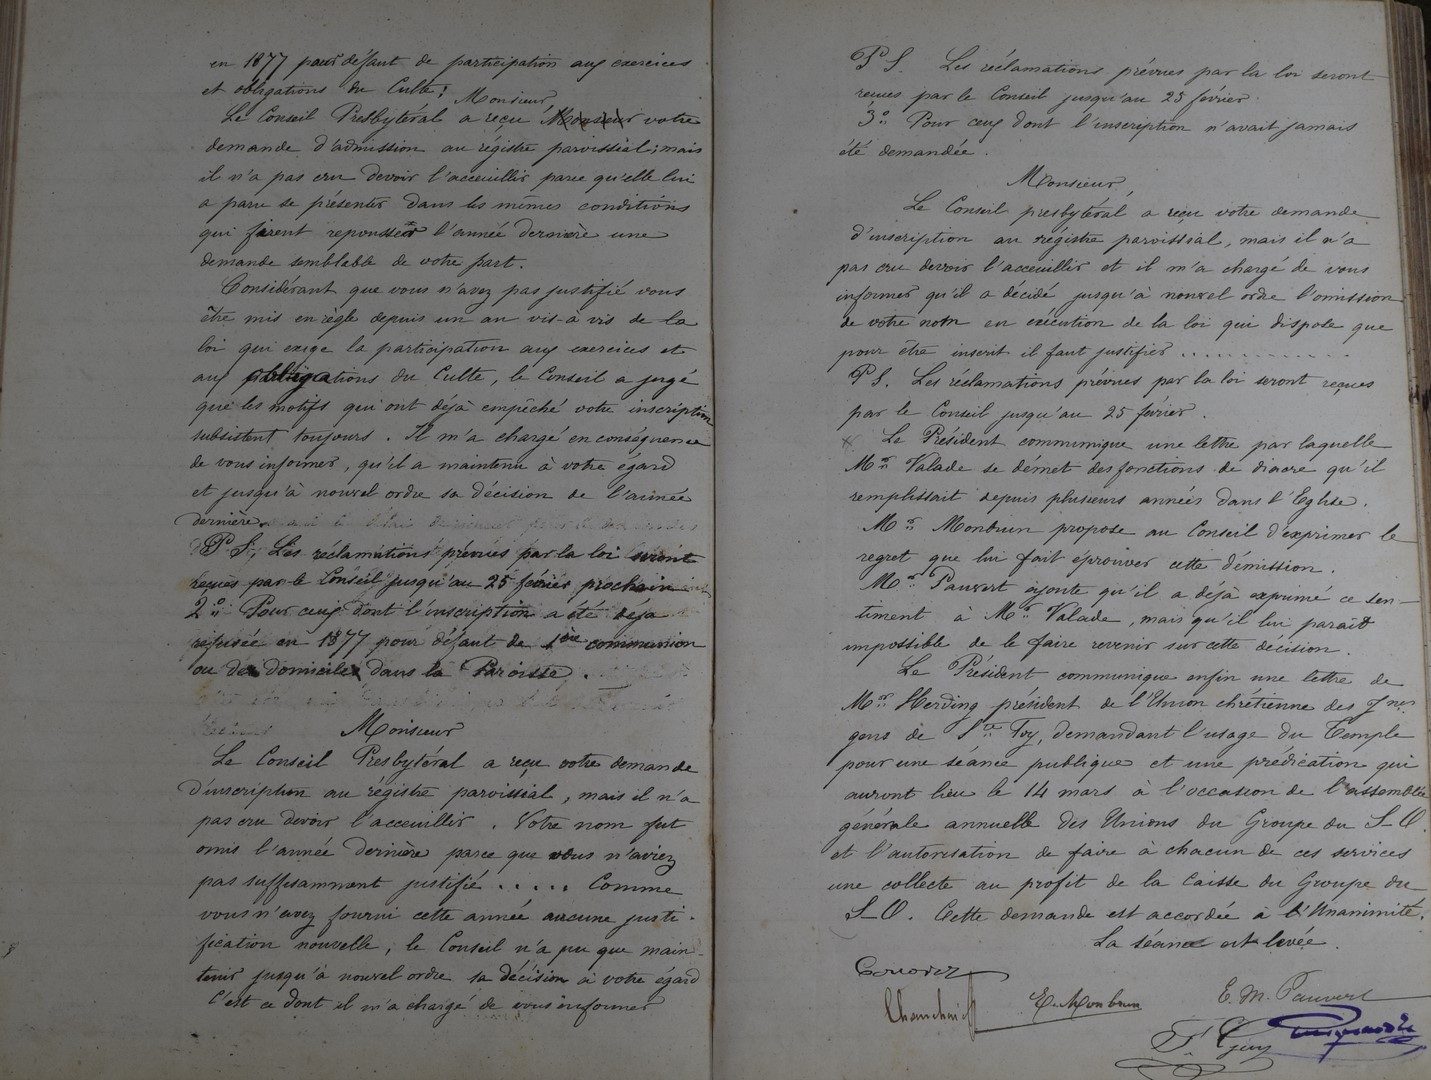 en 1877 pour défaut de participation aux exercices
et obligations du Culte :
Monsieur
Le Conseil Presbytéral a reçu Monsieur votre
demande d'admission au régistre paroissial ; mais
il n'a pas cru devoir l'acceuillir parce qu'elle lui
a paru se présenter dans les mêmes conditions
qui firent repousser l'année dernière une
demande semblable de votre part.
Considérant que vous n'avez pas justifié vous
être mis en règle depuis un an vis-à vis de la
loi qui exige la participation aux exercices et
aux obligations du Culte, le Conseil a jugé
que les motifs qui ont déjà empêché votre inscription
subsistent toujours. Il m'a chargé en conséquence
de vous informer, qu'il a maintenu à votre égard
et jusqu'à nouvel ordre sa décision de l'année
dernière.
P. S. Les réclamations prévues par la loi seront
reçues par le Conseil jusqu'au 25 février prochain
2o. Pour ceux dont l'inscription a été déjà
refusée en 1877 pour défaut de 1ère communion
ou de domicile dans la Paroisse.
Monsieur
Le Conseil Presbytéral a reçu votre demande
d'inscription au régistre paroissial, mais il n'a
pas cru devoir l'acceuillir. Votre nom fut
omis l'année dernière parce que vous n'aviez
pas suffisamment justifié . . . . . Comme
vous n'avez fourni cette année aucune justi-
fication nouvelle, le Conseil n'a pu que main-
tenir jusqu'à nouvel ordre sa décision à votre égard
C'est ce dont il m'a chargé de vous informer
P S. Les réclamations prévues par la loi seront
reçues par le Conseil jusqu'au 25 février.
3o. Pour ceux dont l'inscription n'avait jamais
été demandée.
Monsieur
Le Conseil presbytéral a reçu votre demande
d'inscription au régistre paroissial, mais il n'a
pas cru devoir l'acceuillir et il m'a chargé de vous
informer qu'il a décidé jusqu'à nouvel ordre l'omission
de votre nom en exécution de la loi qui dispose que
pour être inscrit il faut justifier . . . . . . . . . . . .
P S. Les réclamations prévues par la loi seront reçues
par le Conseil jusqu'au 25 février.
Le Président communique une lettre par laquelle
Mr. Valade se démet des fonctions de diacre qu'il
remplissait depuis plusieurs années dans l'Eglise.
Mr. Monbrun propose au Conseil d'exprimer le
regret que lui fait éprouver cette démission.
Mr. Pauvert ajoute qu'il a déjà exprimé ce sen-
timent à Mr. Valade, mais qu'il lui paraît
impossible de le faire revenir sur cette décision.
Le Président communique enfin une lettre de
Mr. Herding président de l'Union chrétienne des Jnes
gens de Ste Foy, demandant l'usage du Temple
pour une séance publique et une prédication qui
auront lieu le 14 mars à l'occasion de l'assemblée
générale annuelle des Unions du Groupe du S O.
et l'autorisation de faire à chacun de ces services
une collecte au profit de la Caisse du Groupe du
S O. Cette demande est accordée à l'Unanimité.
La séance est levée.
E. Monbrun
E. M. Pauvert